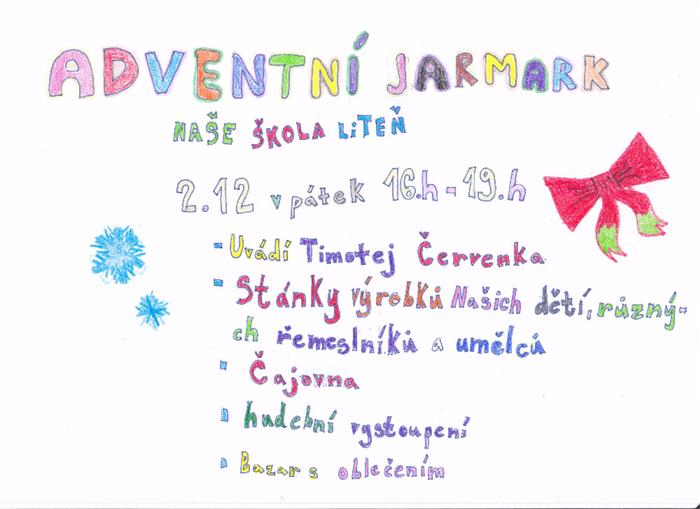 ADVENTNÍ JARMARK
NAŠE ŠKOLA LiTEŇ
2.12 v pátek 16.h - 19.h
- Uvádí Timotej Červenka
- Stánky výrobků Našich dětí, různý-
ch řemeslníků a umělců
- Čajovna
- hudební vystoupení
- Bazar s oblečením